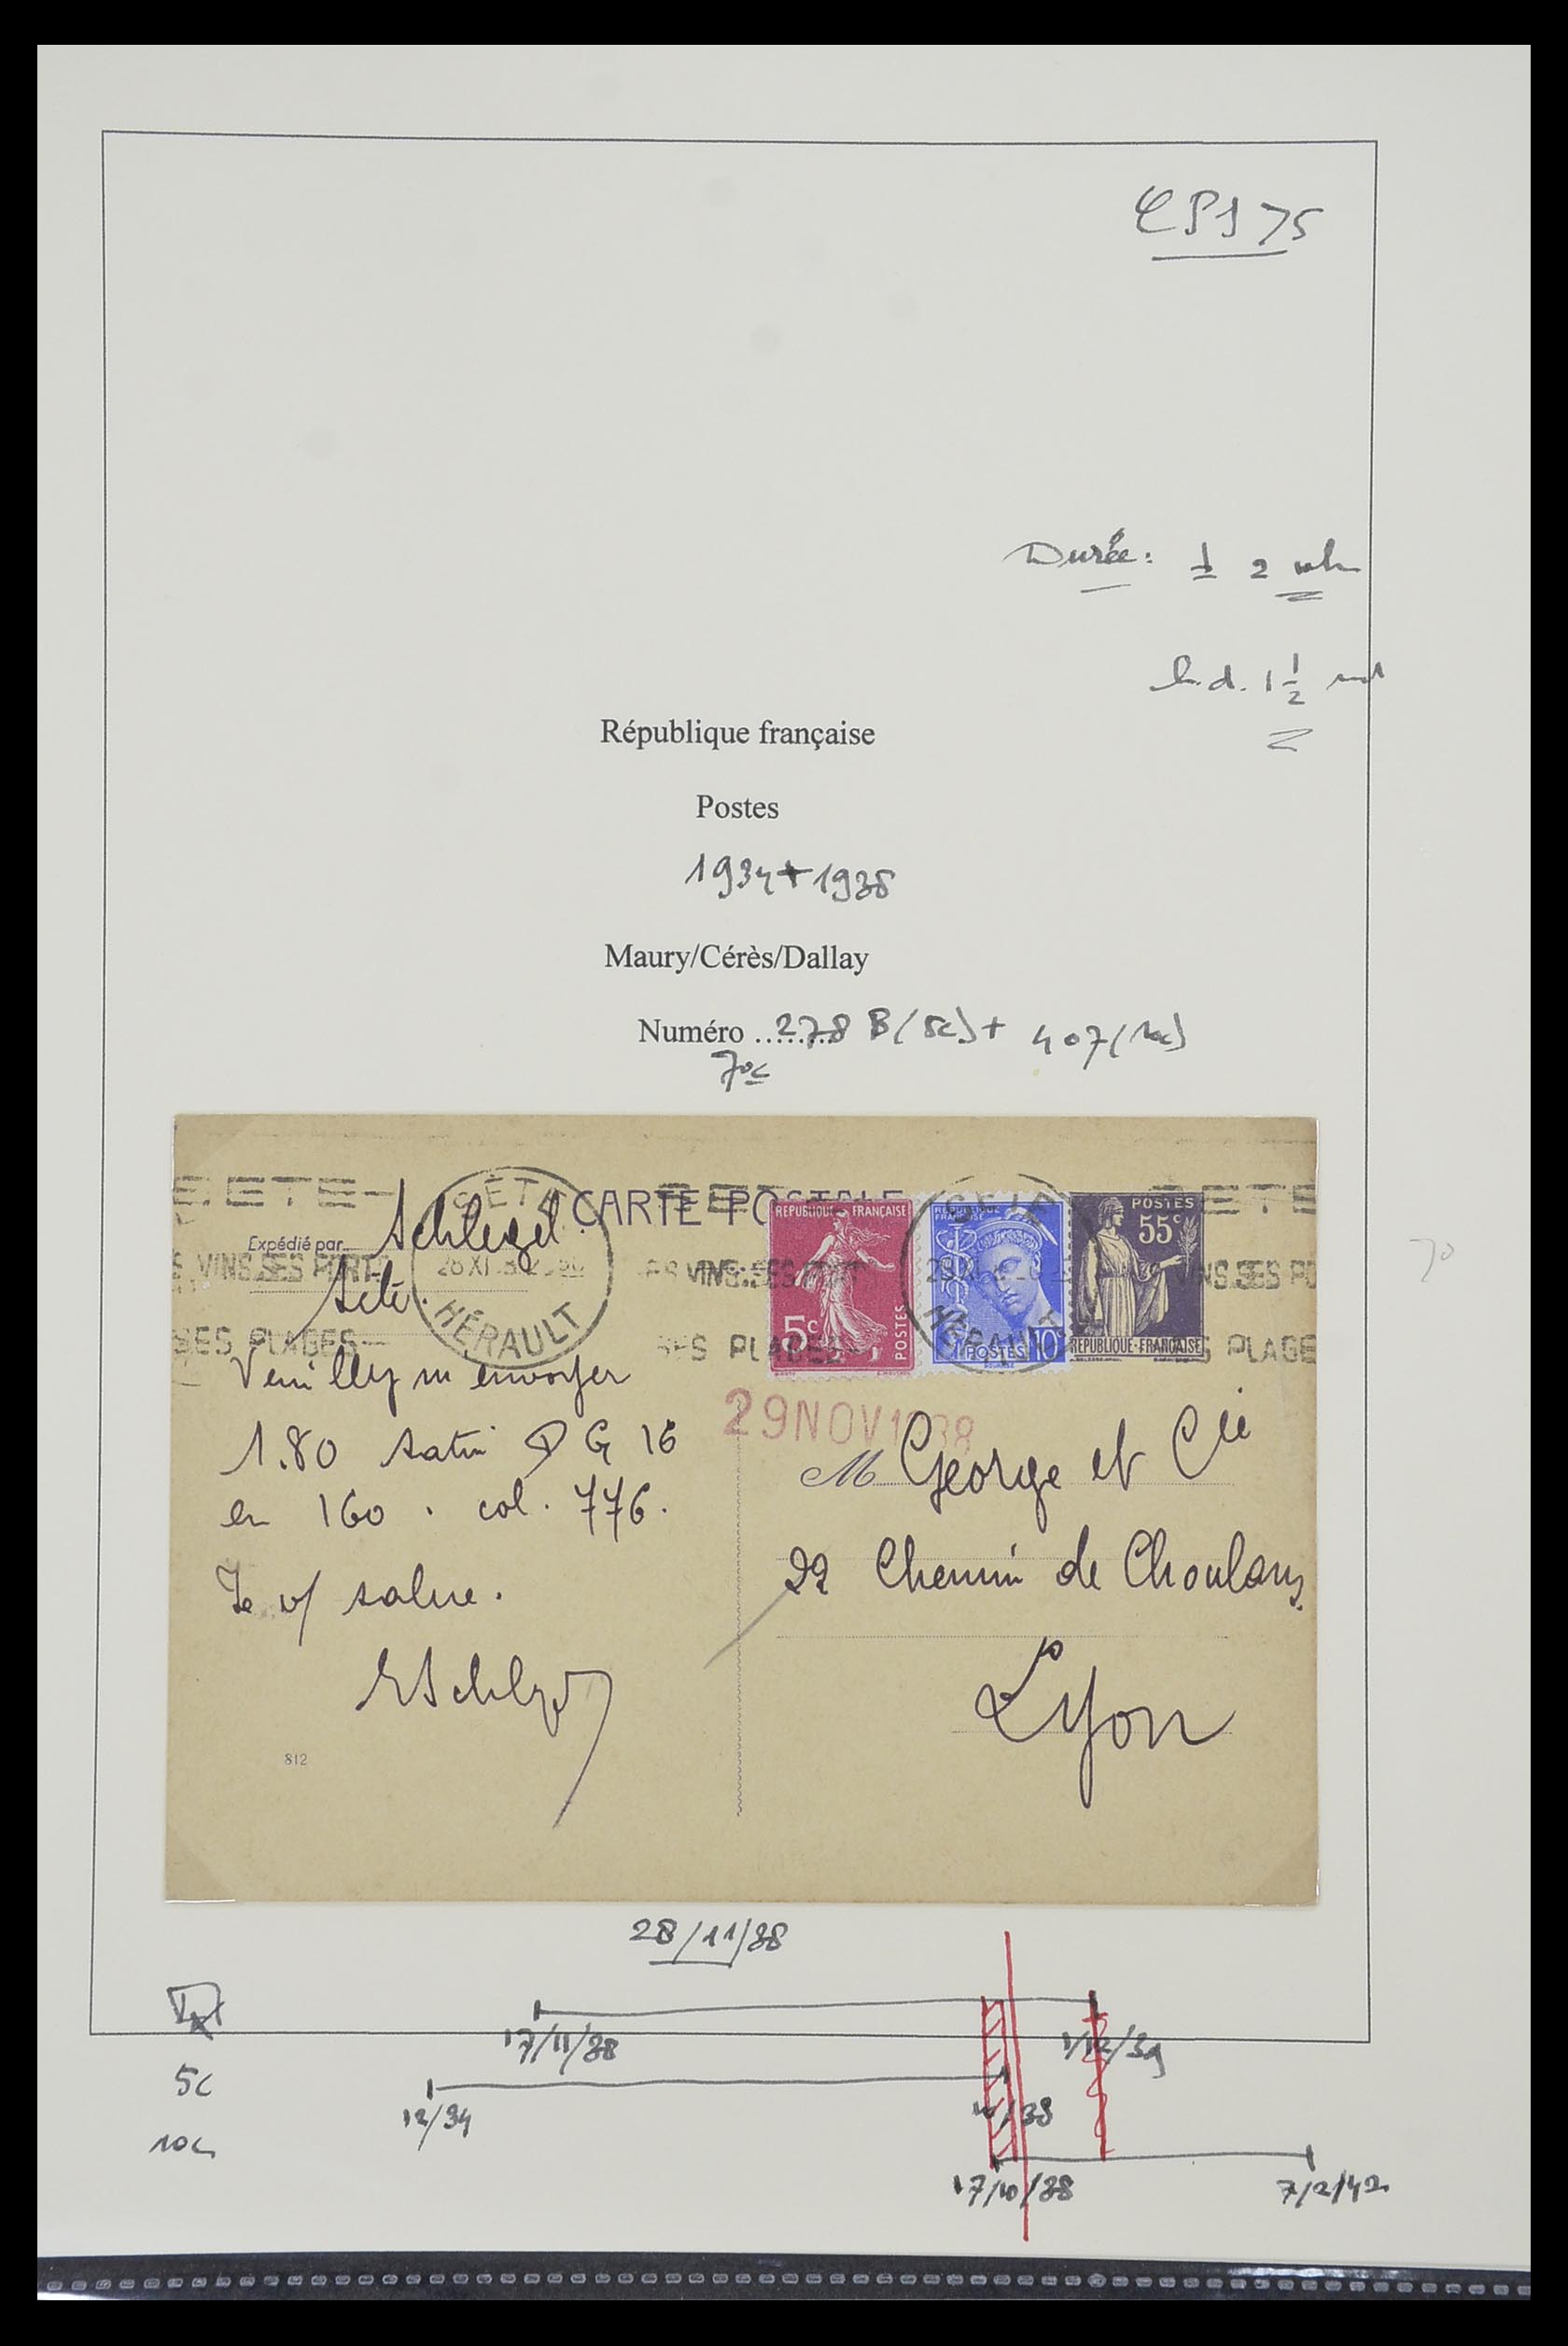 CPS 75
Durée: 1 2
b.d. 1 1/2
République française
Postes
1934 + 1938
Maury/Cérès/Dallay
Numéro ........ 278 B (5c) + 407 (10c)
70c
CARTE POSTALE
SÈTE
HÉRAULT
SES VINS SES PORT
SES PLAGES
RÉPUBLIQUE FRANÇAISE
5c
POSTES
RÉPUBLIQUE FRANÇAISE
POSTES 10c
POSTES
55c
RÉPUBLIQUE-FRANÇAISE
SÈTE
HÉRAULT
Expédié par Schlegel
Sète.
Veuillez m envoyer
1.80 satin D G 16
en 160 . col. 776.
Je v/ salue.
ESchlegel
812
29 NOV 1938
M George et Cie
22 Chemin de Choulans
Lyon
70
28/11/38
17/11/38
1/12/39
5c
12/34
10/38
10c
17/10/38
7/2/42